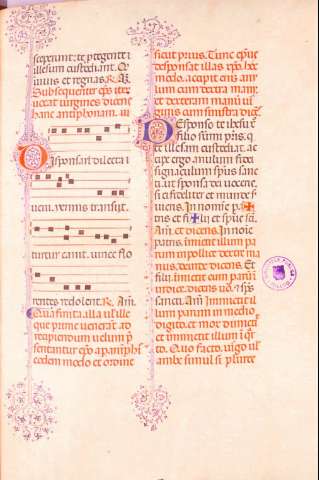 sceperunt: te protegente i
illesum custodiant. Q
vivis et regnas. R. A
Subsequenter eps ite
vocat virgines dicens
hanc antiphonam. vi
Disponsari dilecta i
veni. yemns transijt.
turtur canit. vinee flo
rentes redolent. R. Am.
Quia finita. illa vel ille
que prime venerat ad
recipiendum velum pre
sentantur epo a paranimphis
eodem modo et ordine
sicut prius. Tunc eps
desponsat illas xpo hoc
modo. accipit eius anu
lum cum dextra manu
et dexteram manum vi
ginis cum sinistra dicens
Desponso te ihesu xpo
filio summi pris. q
te illesam custodiat. ac
cipe ergo anulum fidei
signaculum spus san
cti ut sponsa dei voceris.
si ei fideliter et munde s
vieris. In nomine pa
tris et fi lij et spus sci.
Am. et dicens. In noie
patris. inmittit illum pa
rum in pollice dextre ma
nus. deinde dicens. Et
filij. inmittit eum parum
indice. dicens vo. et spus
sancti. Am. inmittit il
lum parum in medio
digito. et mox dimittit
et inmittit illum in qr
to. Quo facto. virgo vel
ambe simul si plures